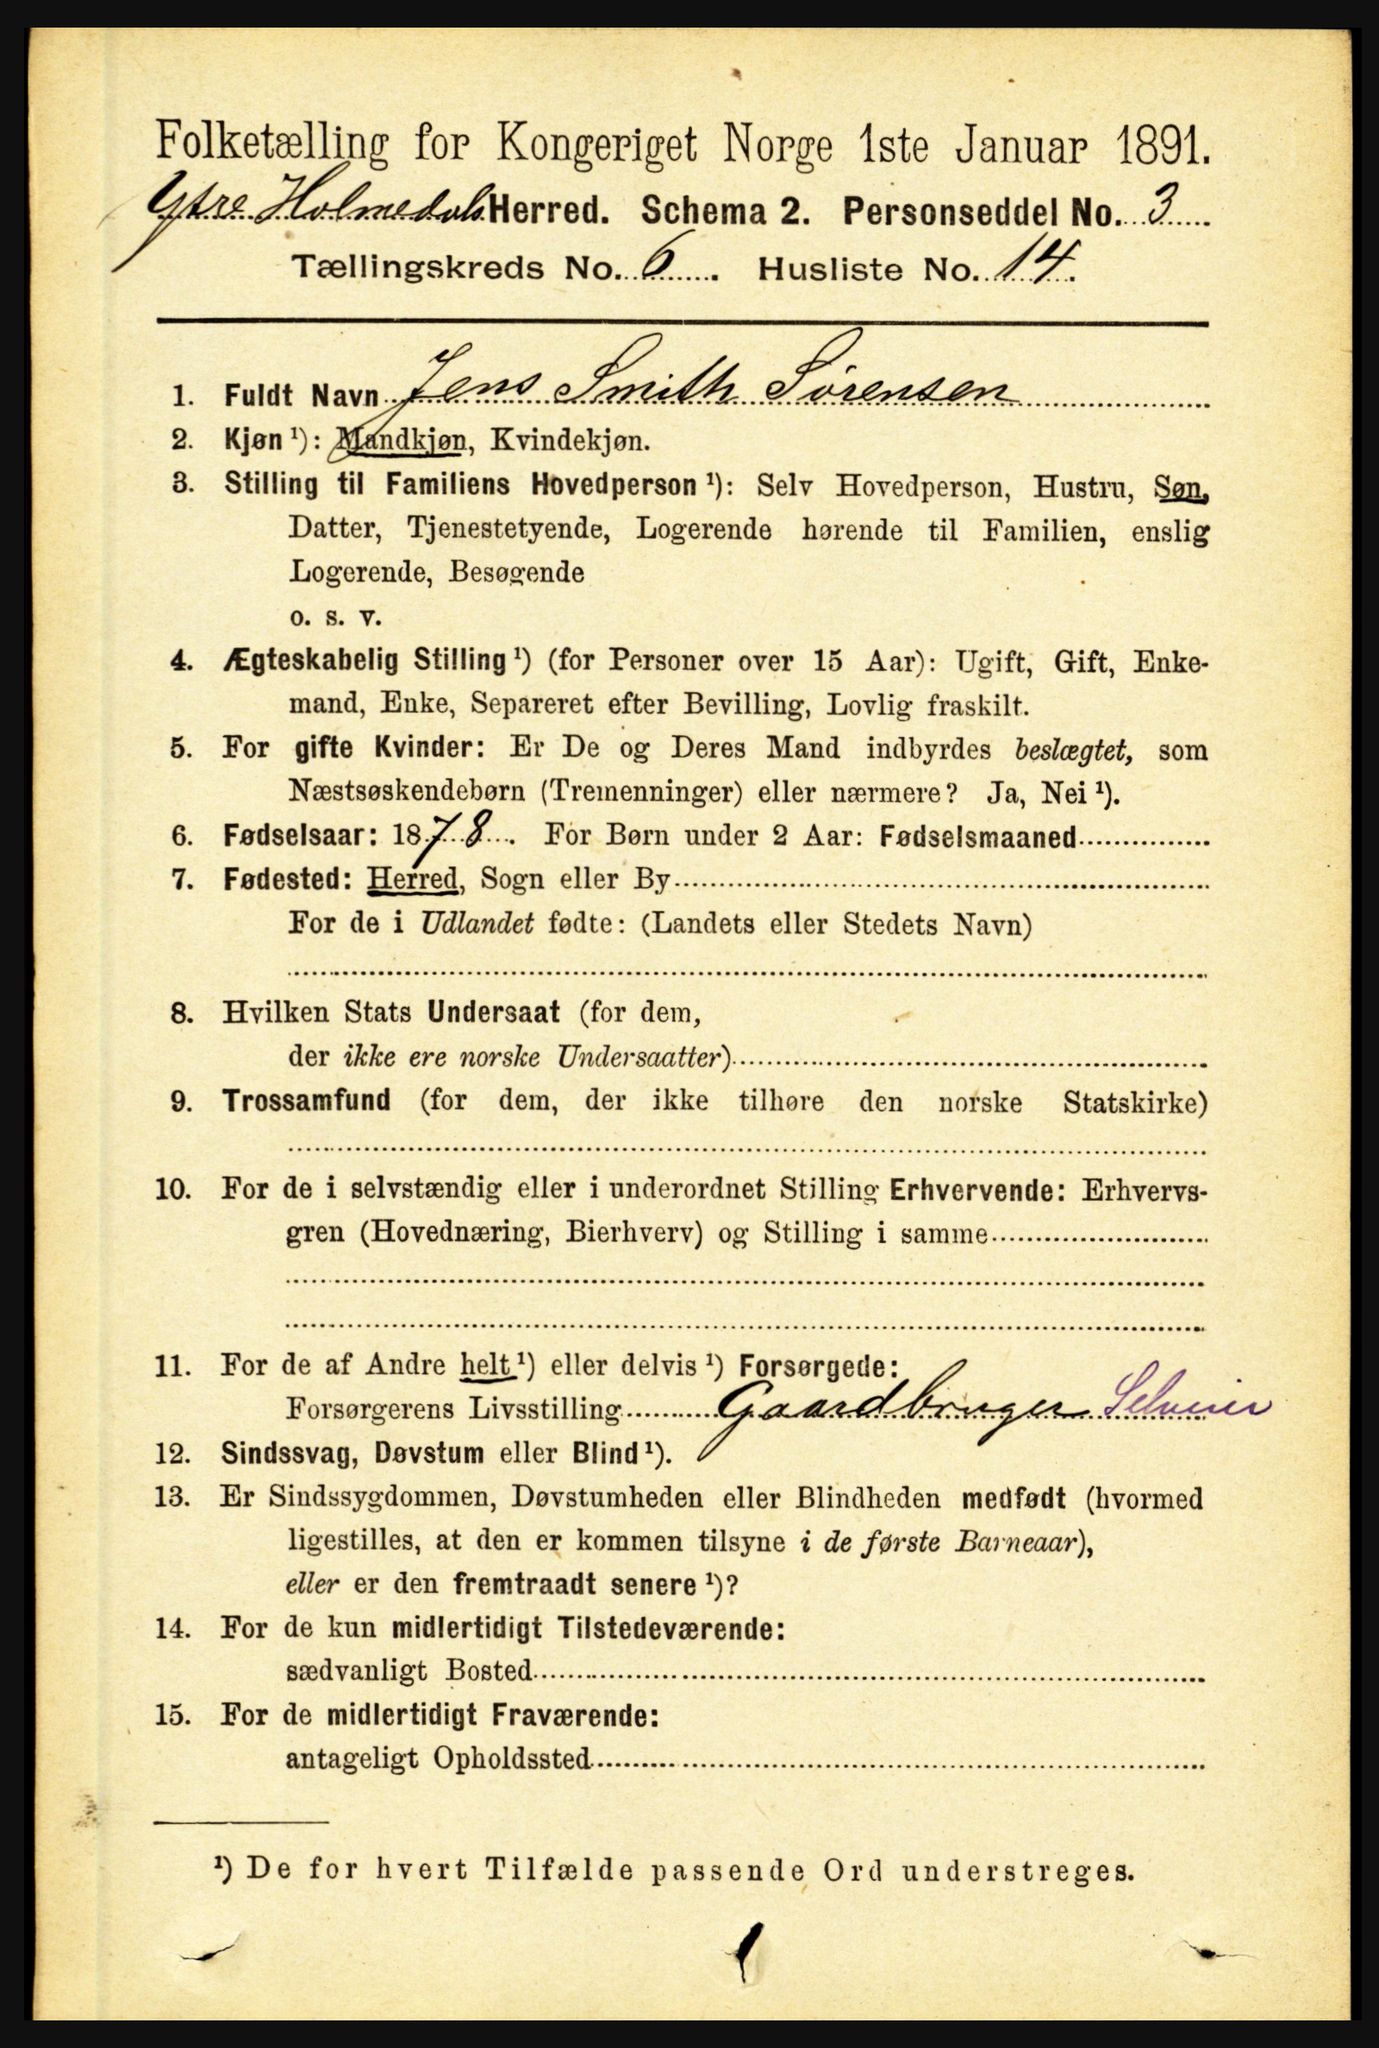 Folketælling for Kongeriget Norge 1ste Januar 1891.
Ytre Holmedals Herred. Schema 2. Personseddel No. 3
Tællingskreds No. 6. Husliste No. 14.
1. Fuldt Navn Jens Smith Sørensen
2. Kjøn ¹): Mandkjøn, Kvindekjøn.
3. Stilling til Familiens Hovedperson ¹): Selv Hovedperson, Hustru, Søn,
Datter, Tjenestetyende, Logerende hørende til Familien, enslig
Logerende, Besøgende
o. s. v.
4. Ægteskabelig Stilling ¹) (for Personer over 15 Aar): Ugift, Gift, Enke-
mand, Enke, Separeret efter Bevilling, Lovlig fraskilt.
5. For gifte Kvinder: Er De og Deres Mand indbyrdes beslægtet, som
Næstsøskendebørn (Tremenninger) eller nærmere? Ja, Nei ¹).
6. Fødselsaar: 1878. For Børn under 2 Aar: Fødselsmaaned
7. Fødested: Herred, Sogn eller By
For de i Udlandet fødte: (Landets eller Stedets Navn)
8. Hvilken Stats Undersaat (for dem,
der ikke ere norske Undersaatter)
9. Trossamfund (for dem, der ikke tilhøre den norske Statskirke)
10. For de i selvstændig eller i underordnet Stilling Erhvervende: Erhvervs-
gren (Hovednæring, Bierhverv) og Stilling i samme
11. For de af Andre helt ¹) eller delvis ¹) Forsørgede:
Forsørgerens Livsstilling Gaardbruger Selveier
12. Sindssvag, Døvstum eller Blind ¹).
13. Er Sindssygdommen, Døvstumheden eller Blindheden medfødt (hvormed
ligestilles, at den er kommen tilsyne i de første Barneaar),
eller er den fremtraadt senere ¹)?
14. For de kun midlertidigt Tilstedeværende:
sædvanligt Bosted
15. For de midlertidigt Fraværende:
antageligt Opholdssted
¹) De for hvert Tilfælde passende Ord understreges.